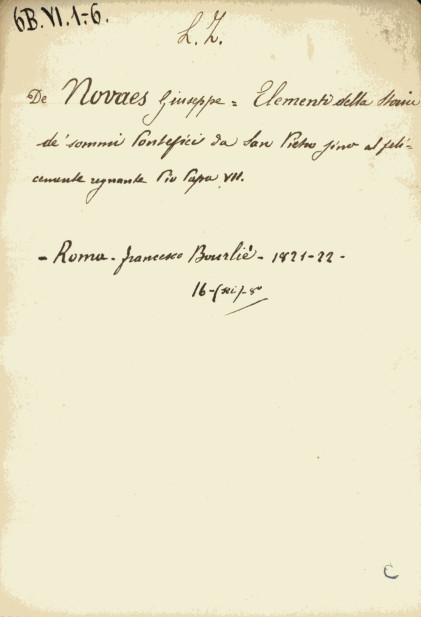 6B.VI.1-6.
L. Z.
De Novaes Giuseppe = Elementi della Storia
de' sommi Pontefici da San Pietro fino al feli-
cemente regnante Pio Papa VII.
- Roma - Francesco Bourlié - 1821-22 -
16-(sei)-8º
C